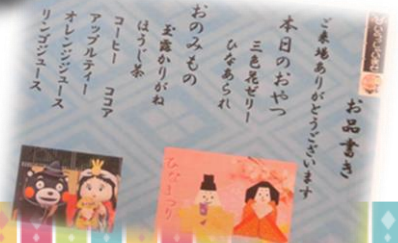 お品書き
ご来場ありがとうございます
本日のおやつ
三色花ゼリー
ひなあられ
おのみもの
玉露かりがね
ほうじ茶
コーヒー　ココア
アップルティー
オレンジジュース
リンゴジュース
ひなまつり